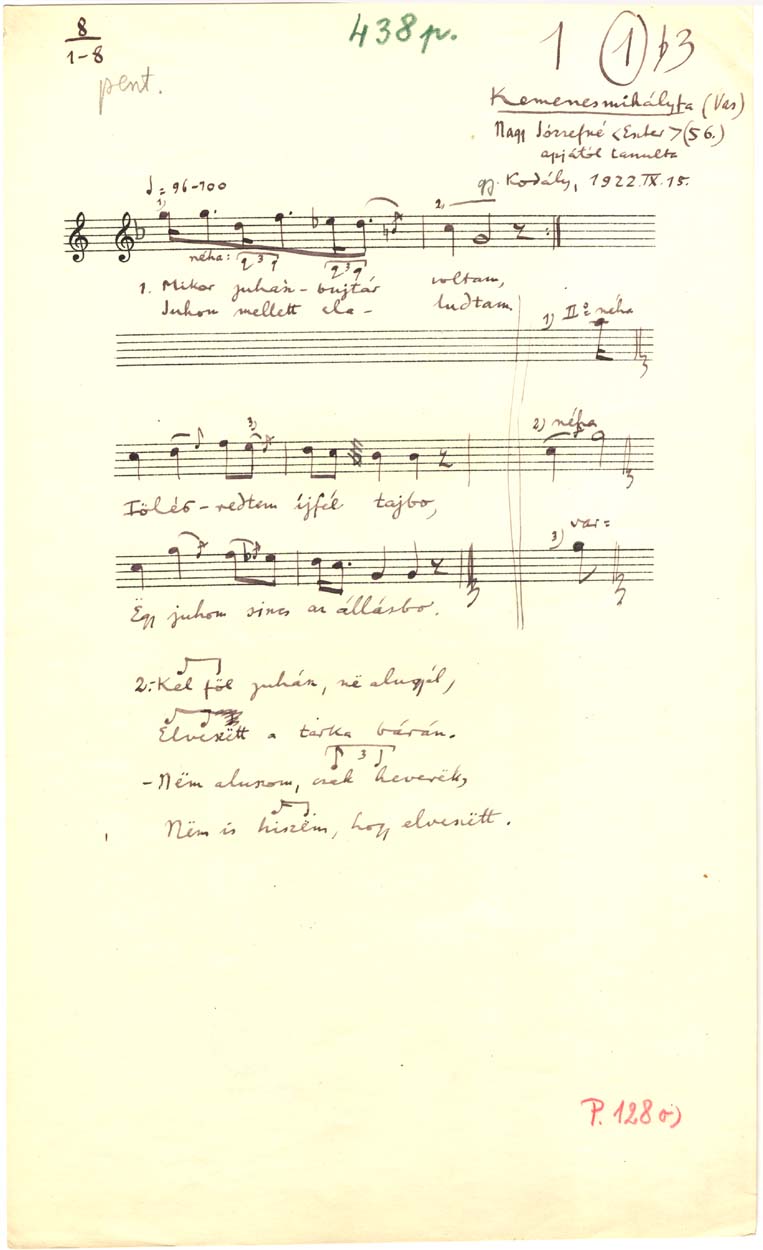 8
1-8
438 p.
1 1 b3
pent.
Kemenesmihályfa (Vas)
Nagy Józsefné <Eszter> (56.)
apjától tanulta
gy. Kodály, 1922.IX.15.
♩ = 96-100
1) 2)
néha: 3 3
1. Mikor juhász-bujtár voltam,
Juhom mellett ela- ludtam
1) II° néha
3) 2) néha
Föléb-redtem éjfél tajbo,
3) var:
Ëgy juhom sincs az állásbo.
2. Kel föl juhász, në alugjál,
Elveszëtt a tarka bárán.
3
- Nëm aluszom, csak heverëk,
Nëm is hiszëm, hogy elveszëtt.
P. 128 o)